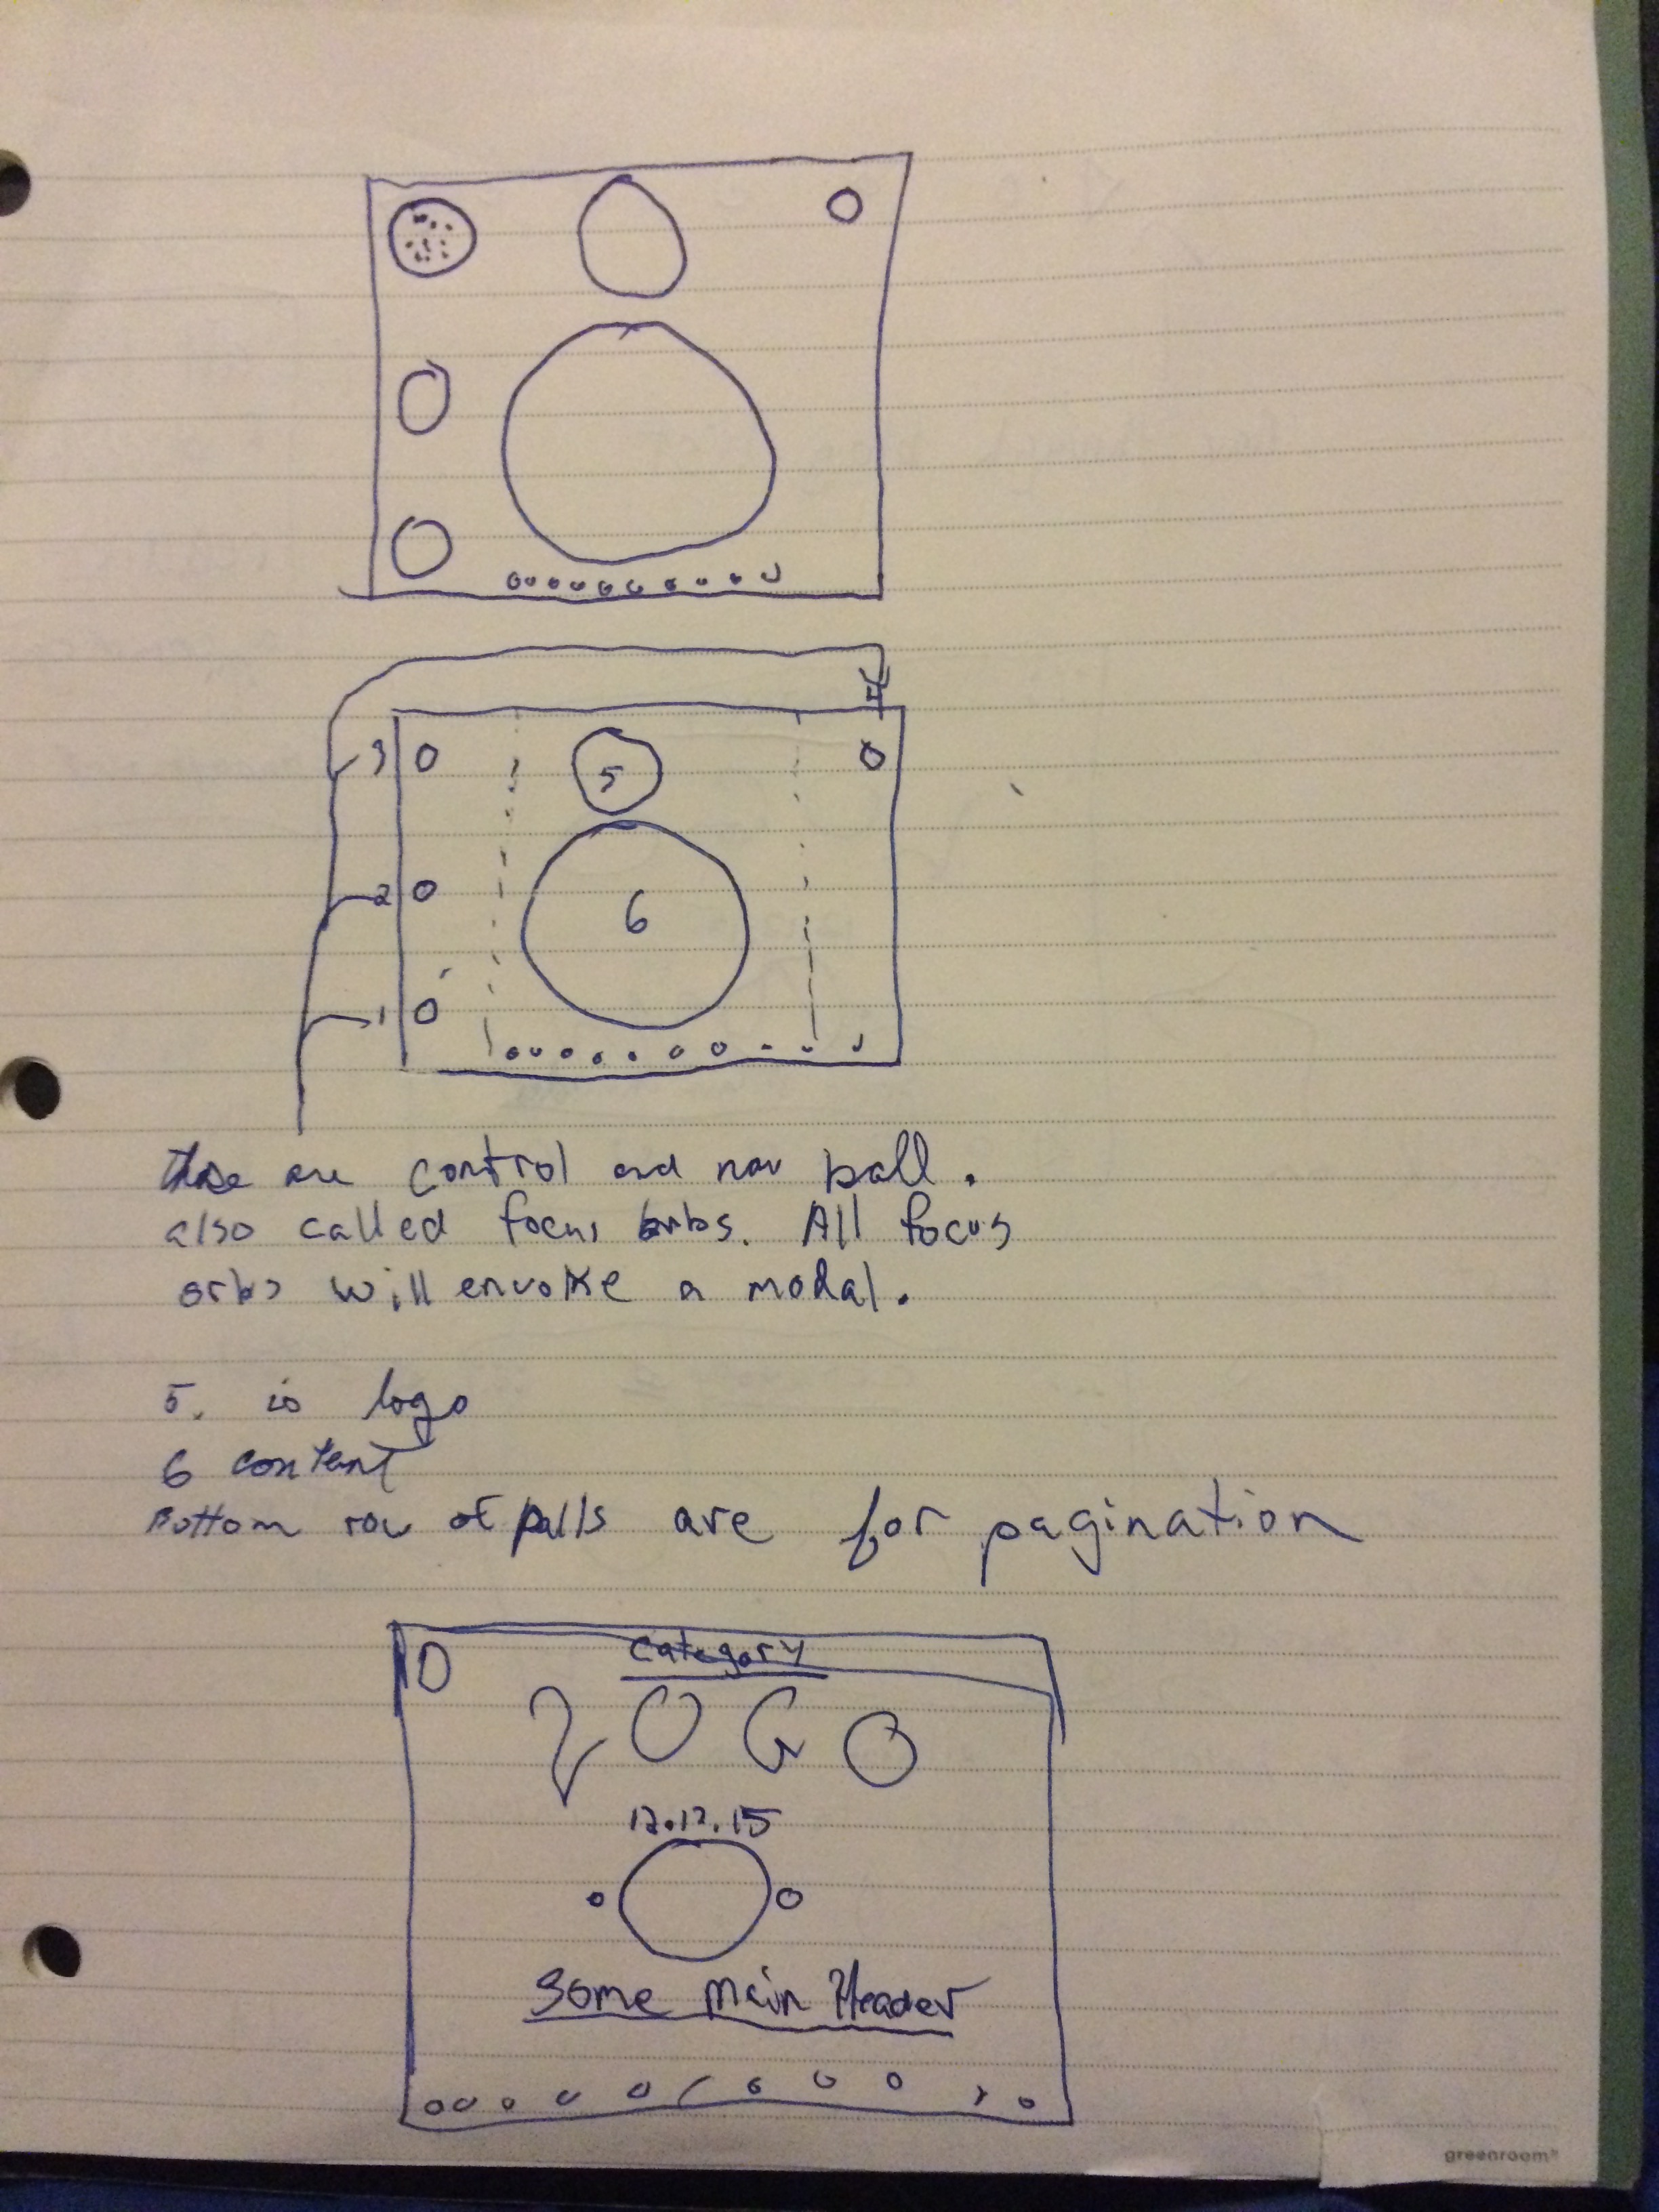 4
3
5
2
6
1
those are control and nav ball.
also called focus orbs. All focus
orbs will envoke a modal.
5. is logo
6 content
Bottom row of balls are for pagination
Category
LOGO
12.12.15
Some main Header
greenroom